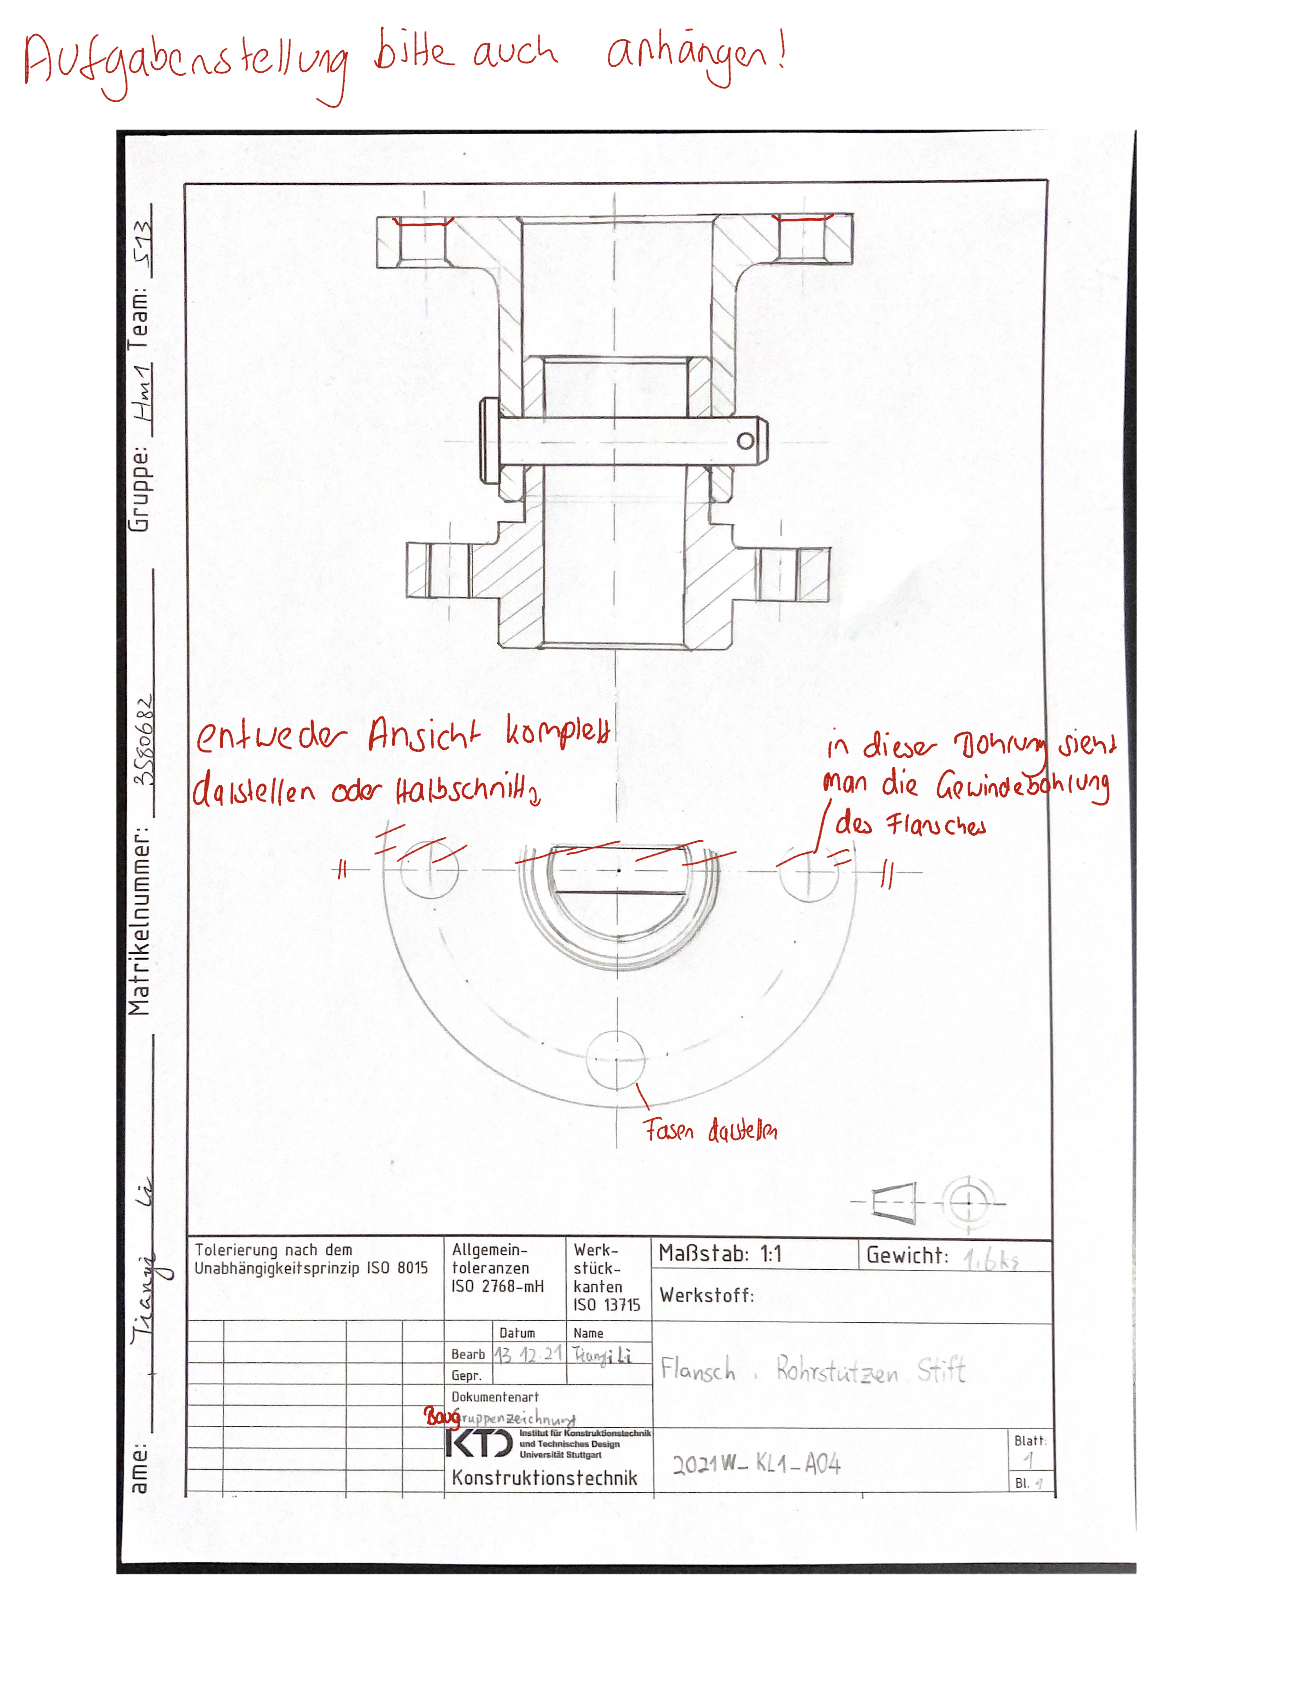 Aufgabenstellung bitte auch anhängen!
Name: Tianyi Li Matrikelnummer: 3580682 Gruppe: Hm1 Team: 513
entweder Ansicht komplett
darstellen oder Halbschnitt
in dieser Bohrung sieht
man die Gewindebohrung
des Flansches
Fasen darstellen
Tolerierung nach dem
Unabhängigkeitsprinzip ISO 8015
Allgemein-
toleranzen
ISO 2768-mH
Werk-
stück-
kanten
ISO 13715
Maßstab: 1:1
Gewicht: 1.6kg
Werkstoff:
Datum Name
Bearb 13.12.21 Tianyi Li
Gepr.
Dokumentenart
Baugruppenzeichnung
Flansch, Rohrstutzen Stift
KTD Institut für Konstruktionstechnik
und Technisches Design
Universität Stuttgart
Konstruktionstechnik
2021W-KL1-A04
Blatt:
1
Bl. 1